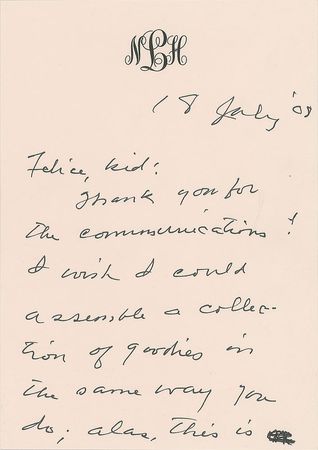 NLH
18 July '09
Felice, kid:
Thank you for
the communications!
I wish I could
assemble a collec-
tion of goodies in
the same way you
do; alas, this is